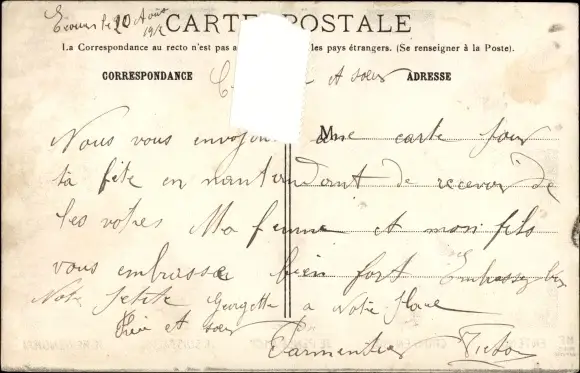 le 20 Août
CARTE POSTALE
La Correspondance au recto n'est pas a les pays étrangers. (Se renseigner à la Poste).
CORRESPONDANCE et sœur ADRESSE
Nous vous envoyons une carte pour
ta fête en nantendant de recevoir de
les votres Ma femme et mon fils
vous embrasse bien fort Embrassez bien
Notre petite Georgette a Notre place
et sœur Parmentier Victor